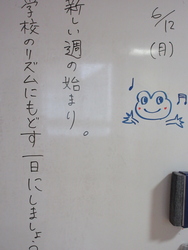 6/12
(月)
新しい週の始まり。
学校のリズムにもどす一日にしましょう